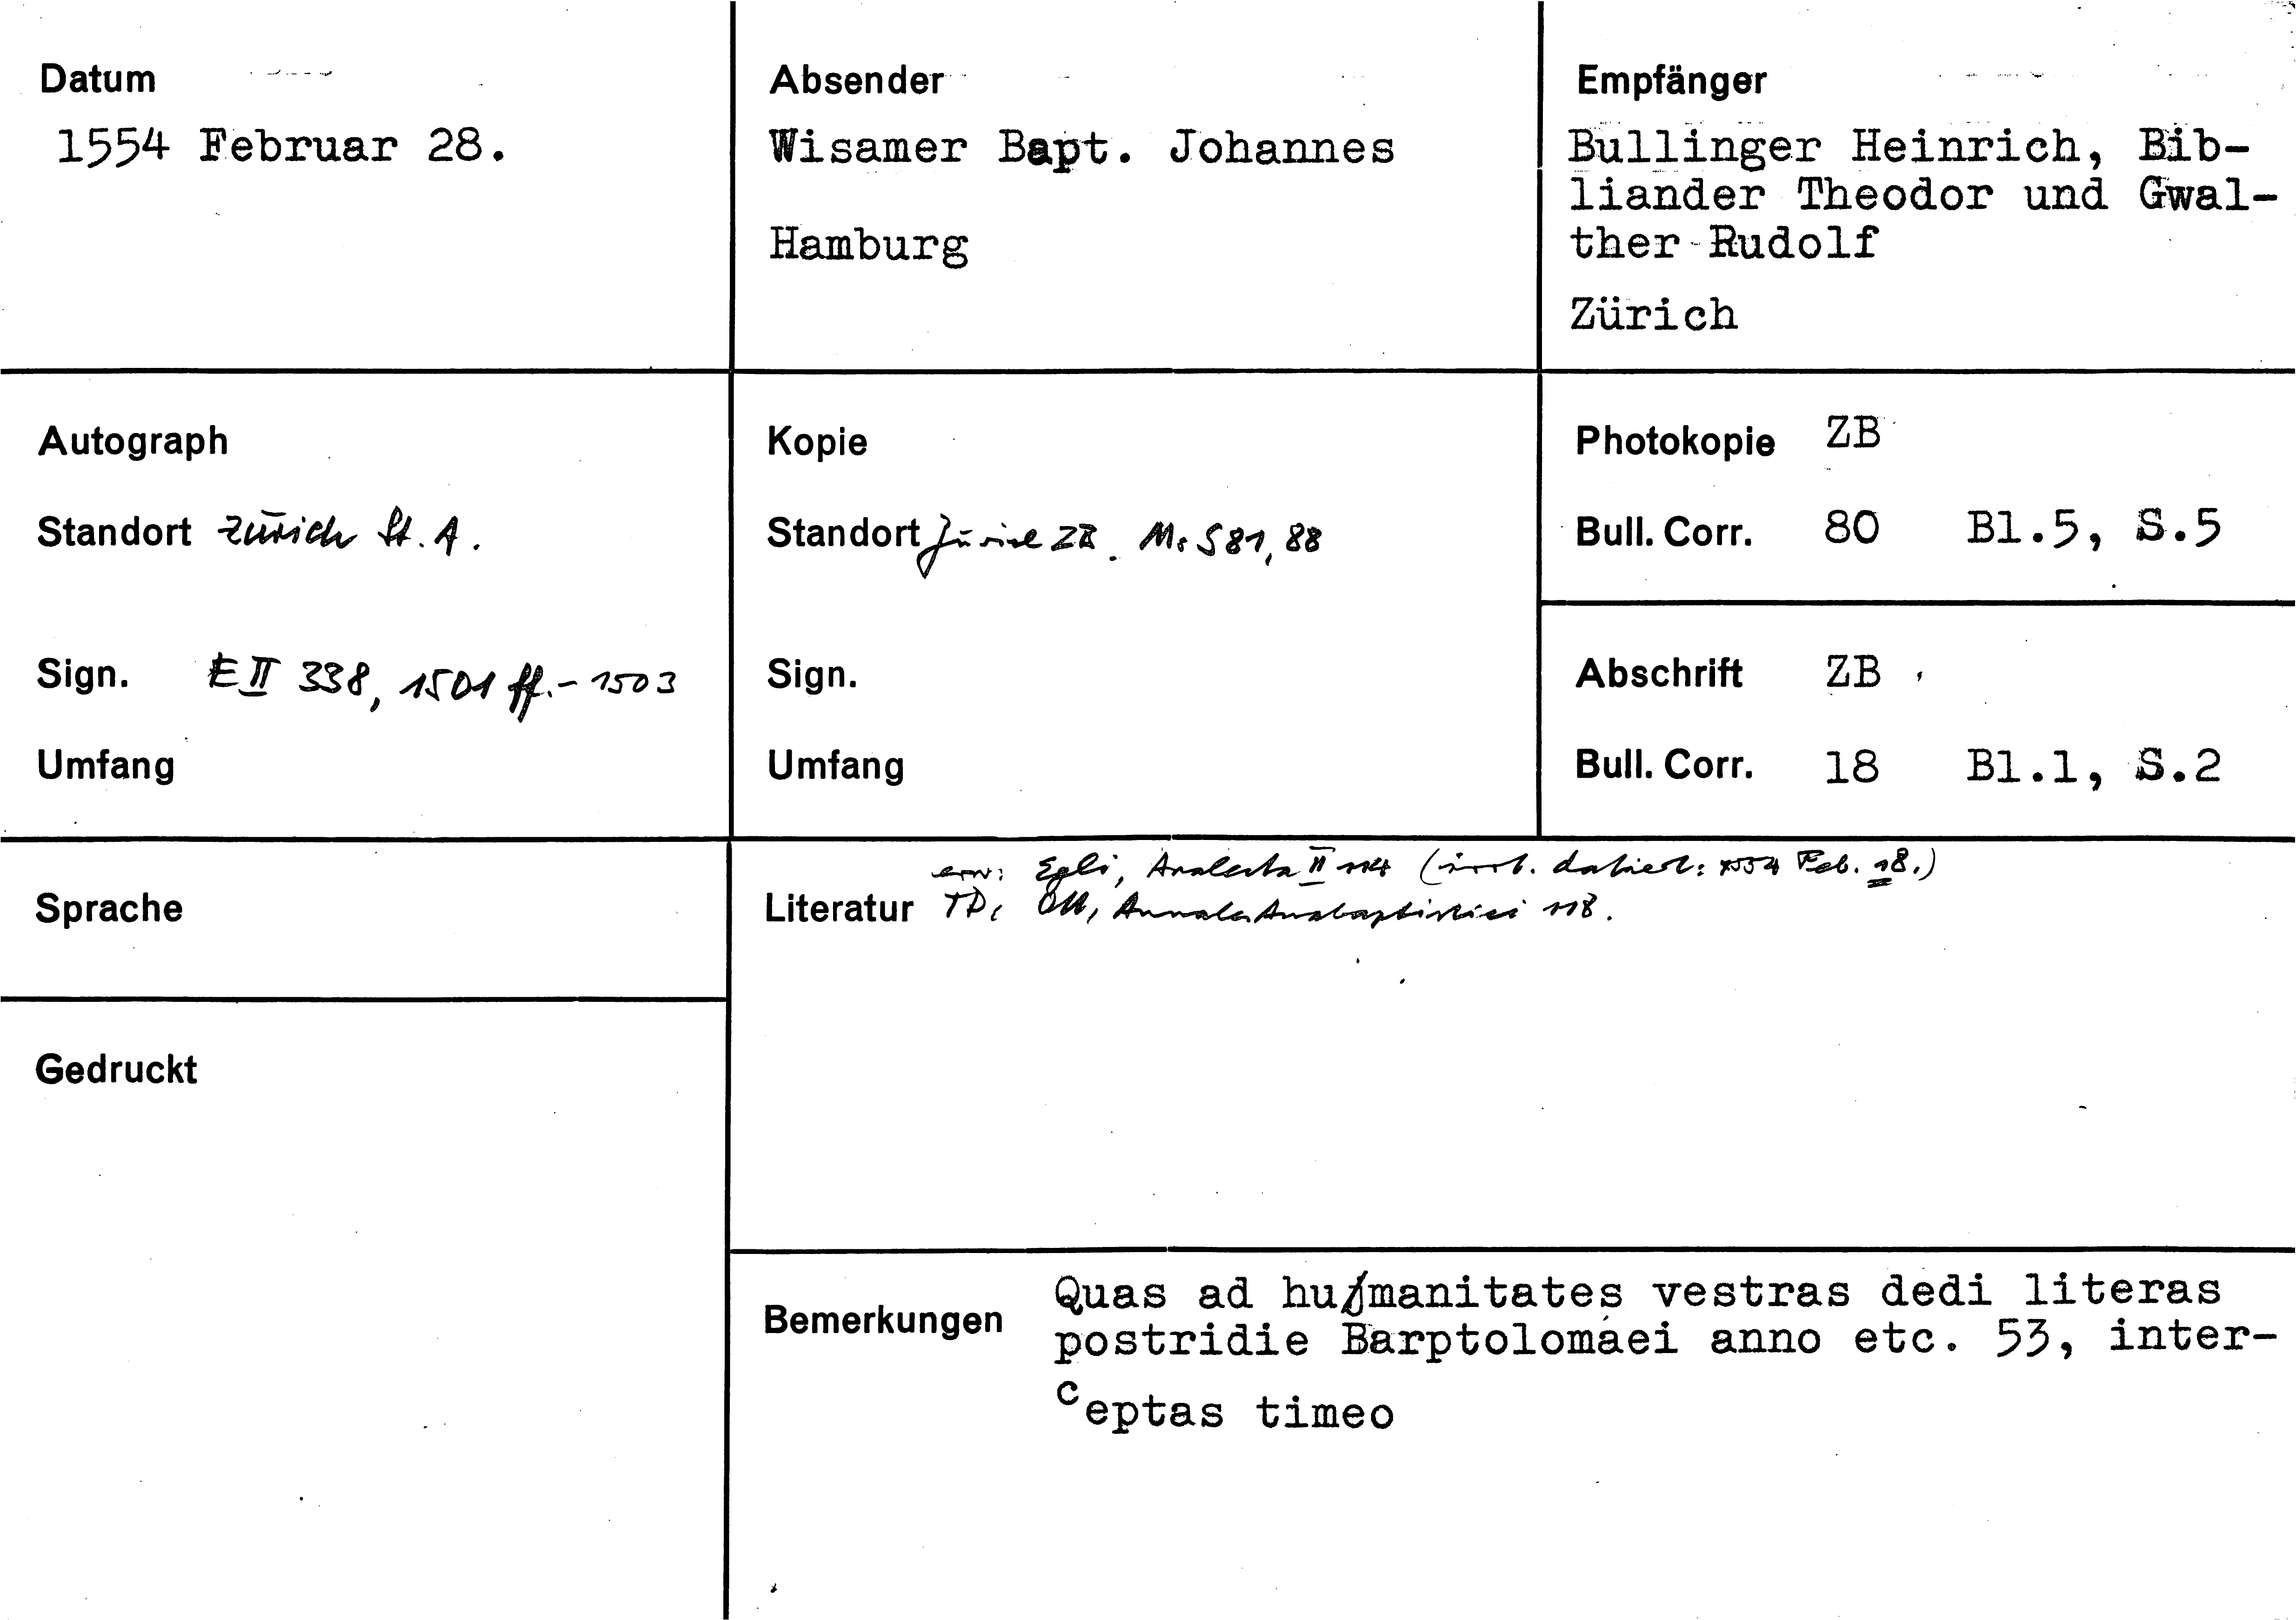 Datum
1554 Februar 28.
Absender
Wisamer Bapt. Johannes
Hamburg
Empfänger
Bullinger Heinrich, Bib-
liander Theodor und Gwal-
ther Rudolf
Zürich
Autograph
Standort Zürich St. A.
Sign. E II 338, 1501 ff.- 1503
Umfang
Kopie
Standort Zürich ZB. Ms S 81, 88
Sign.
Umfang
Photokopie ZB
Bull. Corr. 80 Bl.5, S.5
Abschrift ZB
Bull. Corr. 18 Bl.1, S.2
Sprache
Gedruckt
erw: Egli, Analecta II 114 (irrt. datiert: 1554 Feb. 18.)
Literatur TD: Ott, Annales Anabaptistici 118.
Bemerkungen Quas ad humanitates vestras dedi literas
postridie Barptolomaei anno etc. 53, inter-
ceptas timeo